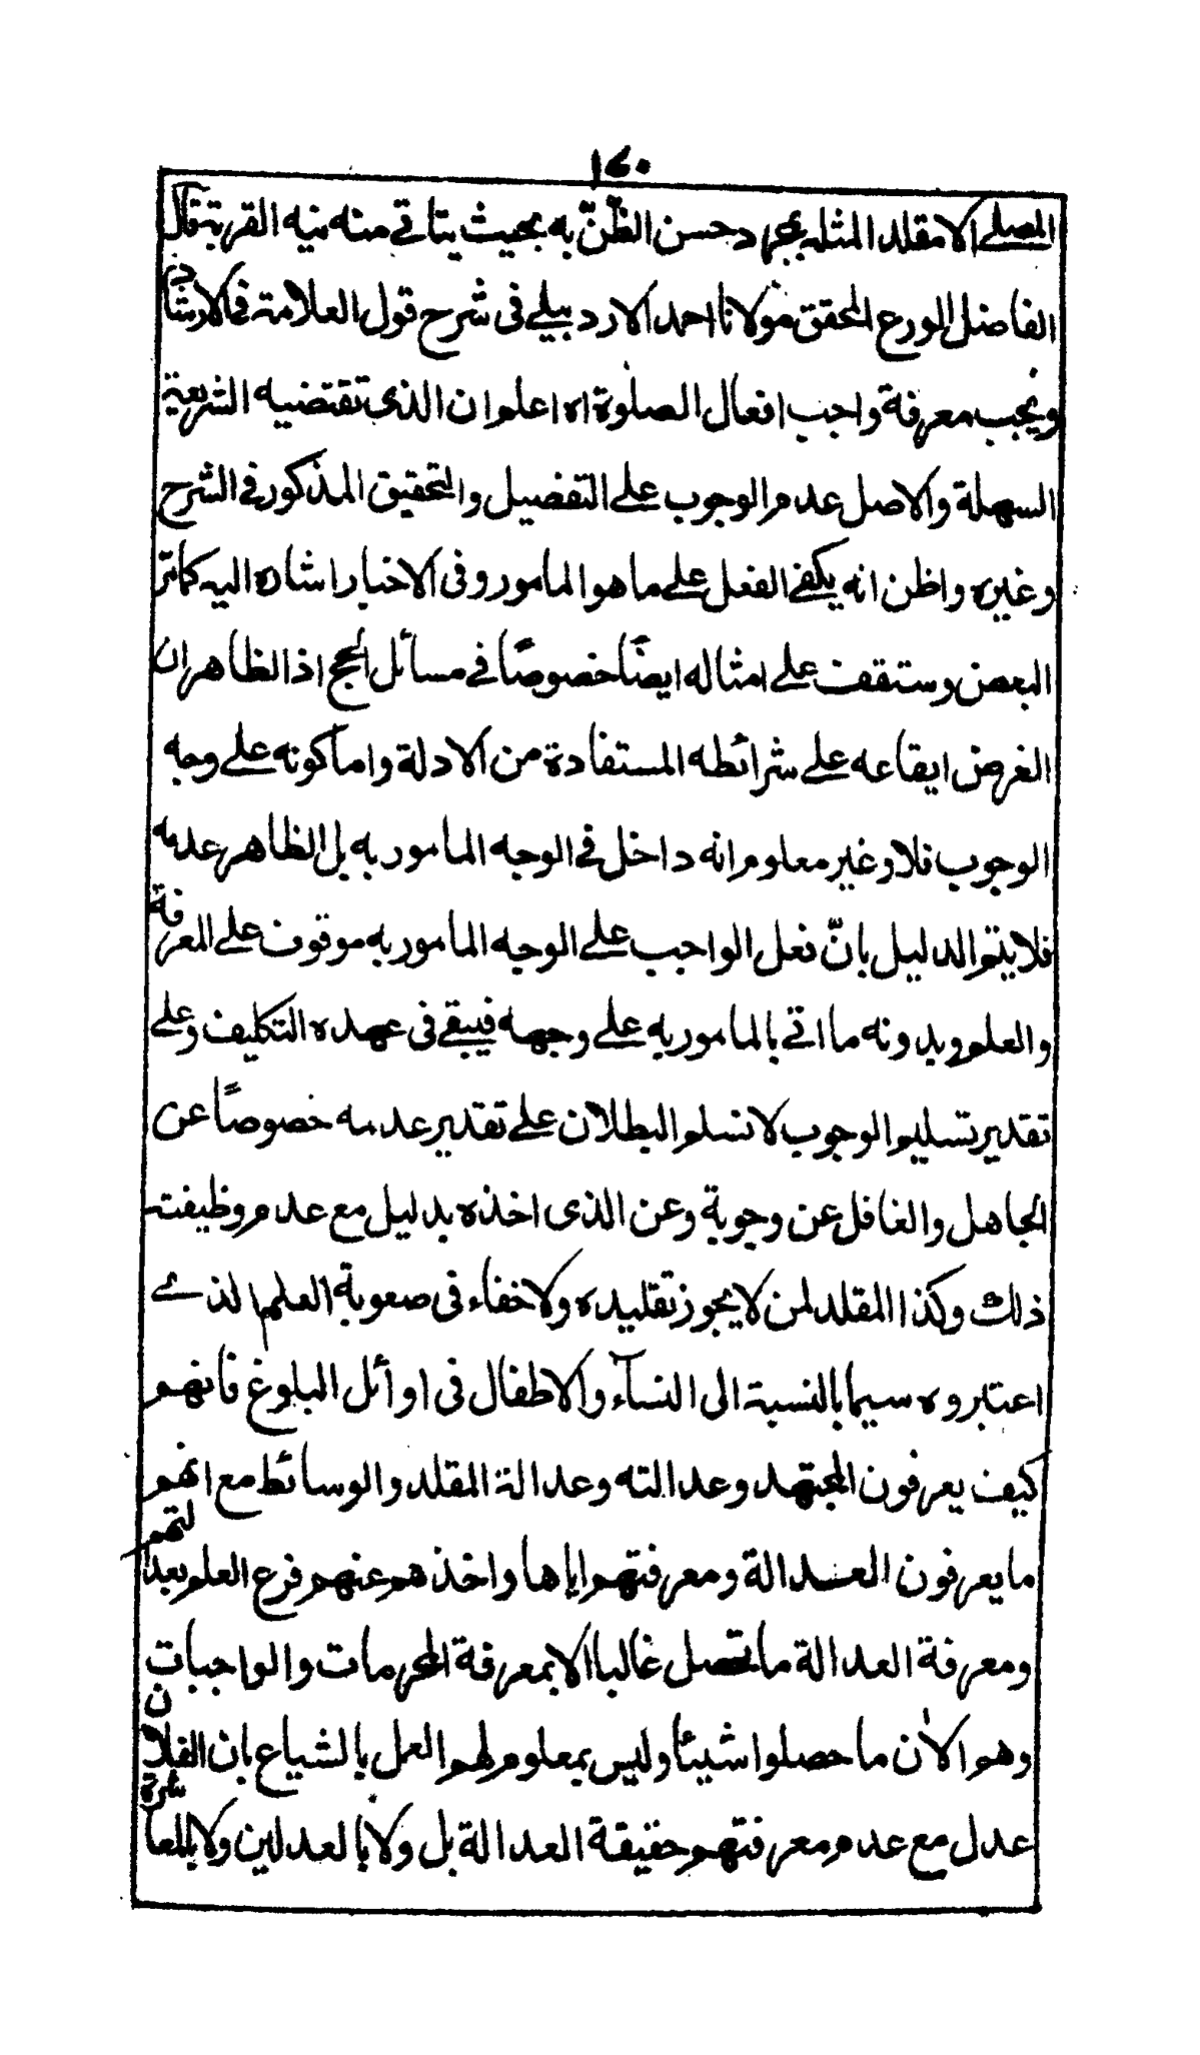 ١٤٠
المصلے الا مقلد المثله بمجرد حسن الظّنّ به بحيث يتاتے منه نيه القربة قال
الفاضل الورع المحقق مولانا احمد الاردبيلے فى شرح قول العلامة فى الارشاد
ويجب معرفة واجب افعال الصلوة اه اعلم ان الذى تقتضيه الشريعة
السهلة والاصل عدم الوجوب علے التفضيل والتحقيق المذكور فے الشرح
وغيره واظن انه يكفے الفعل علے ما هو المامور وفى الاخبار اشاره اليه كما مر
البعض وستقف علے امثاله ايضًا خصوصًا فے مسائل الحج اذ الظاهر ان
الغرض ايقاعه علے شرائطه المستفادة من الادلة واما كونه علے وجه
الوجوب فلا وغير معلوم انه داخل فے الوجه المامور به بل الظاهر عدمه
فلا يتم الدليل بانّ فعل الواجب علے الوجه المامور به موقوف علے المعرفة
والعلم وبدونه ما اتے بالمامور به علے وجهه فيبقے فى عهده التكليف وعلے
تقدير تسليم الوجوب لا نسلم البطلان علے تقدير عدمه خصوصًا عن
الجاهل والغافل عن وجوبة وعن الذى اخذه بدليل مع عدم وظيفته
ذلك وكذا المقلد لمن لا يجوز تقليده ولا خفاء فى صعوبة العلم الذے
اعتبروه سيما بالنسبة الى النسآء والاطفال فى اوائل البلوغ فانهم
كيف يعرفون المجتهد وعدالته وعدالة المقلد والوسائط مع انهم
ما يعرفون العدالة ومعرفتهم اياها واخذهم عنهم فرع العلم بعدالتهم
ومعرفة العدالة ما تحصل غالبا الا بمعرفة المحرمات والواجبات
وهم الان ما حصلوا شيئا وليس بمعلوم لهم العمل بالشياع بان الفلان
عدل مع عدم معرفتهم حقيقة العدالة بل ولا بالعدلين ولا بالمعاشرة